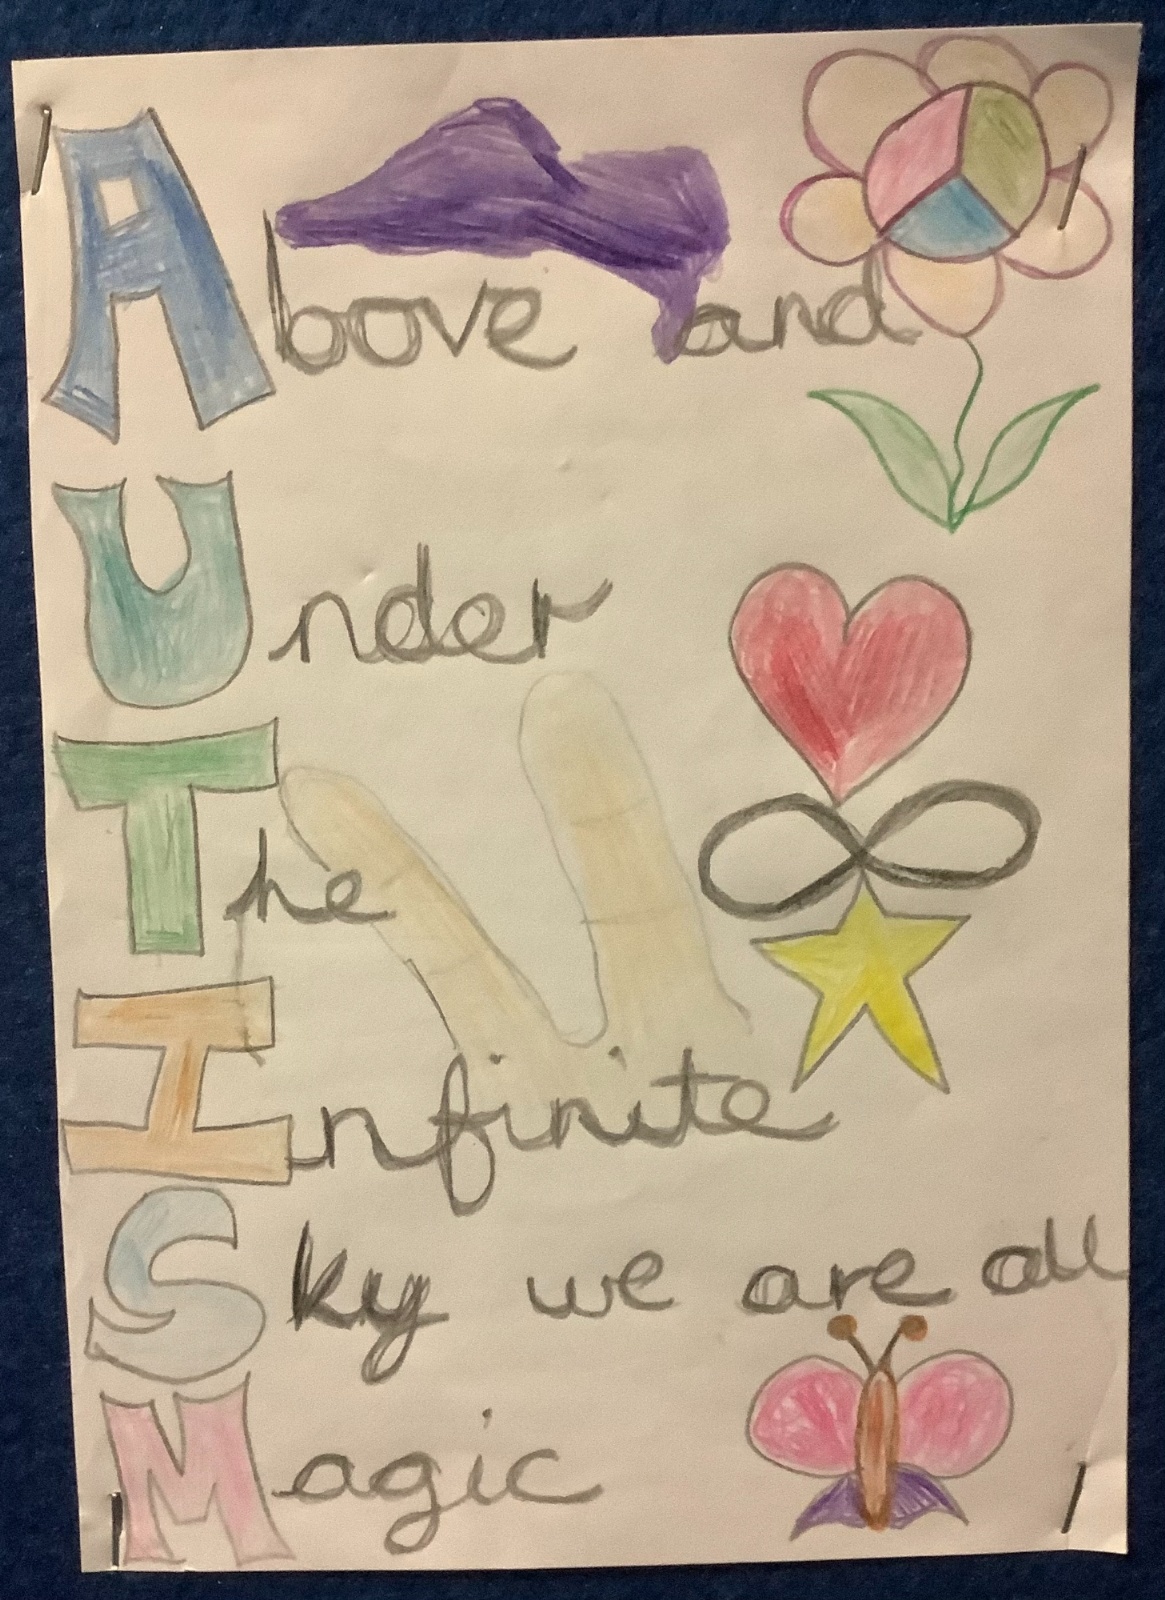 Above and
Under
The
Infinite
Sky we are all
Magic